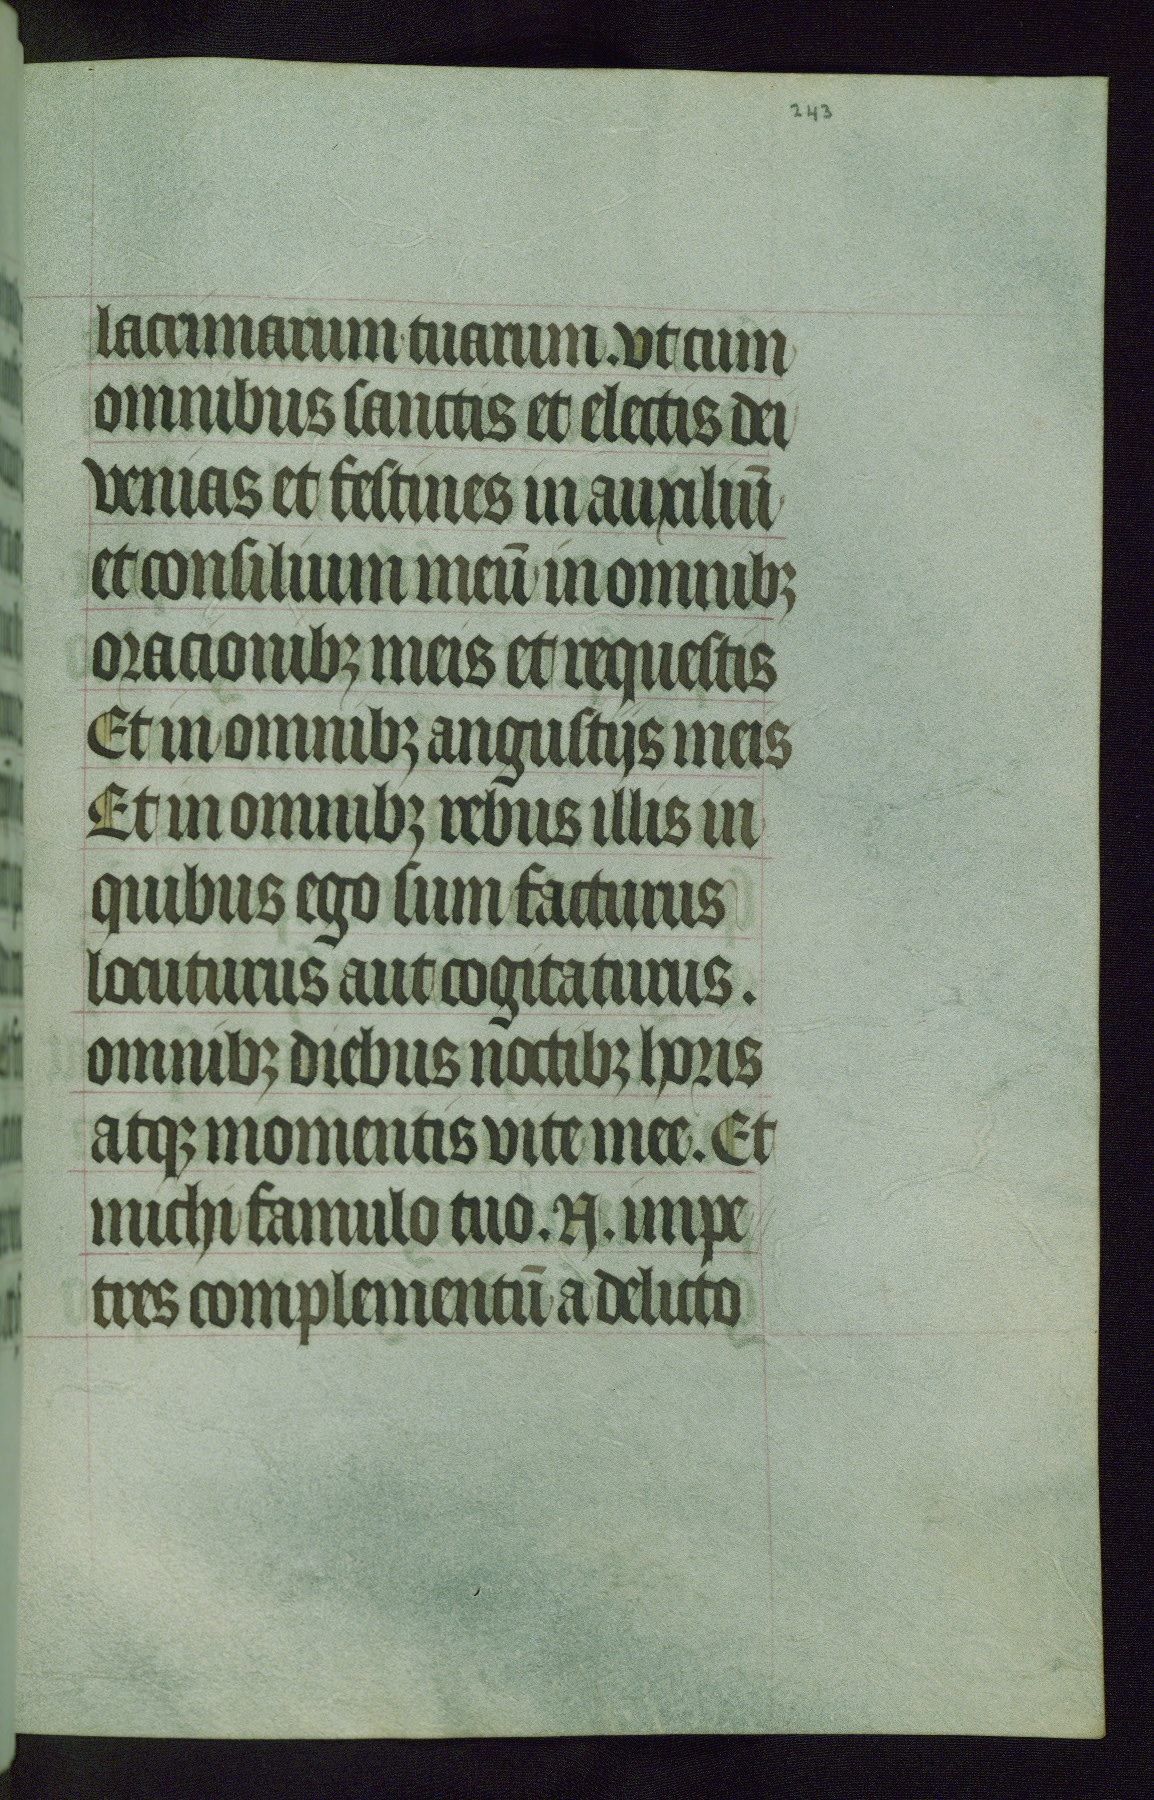 243
lacrimarum tuarum. vt cum
omnibus sanctis et electis dei
venias et festines in auxiliū
et consilium meū in omnibꝫ
oracionibꝫ meis et requestis
Et in omnibꝫ angustijs meis
Et in omnibꝫ rebus illis in
quibus ego sum facturus
locuturus aut cogitaturus.
omnibꝫ diebus noctibꝫ horis
atqꝫ momentis vite mee. Et
michi famulo tuo. N. impe
tres complementū a delicto